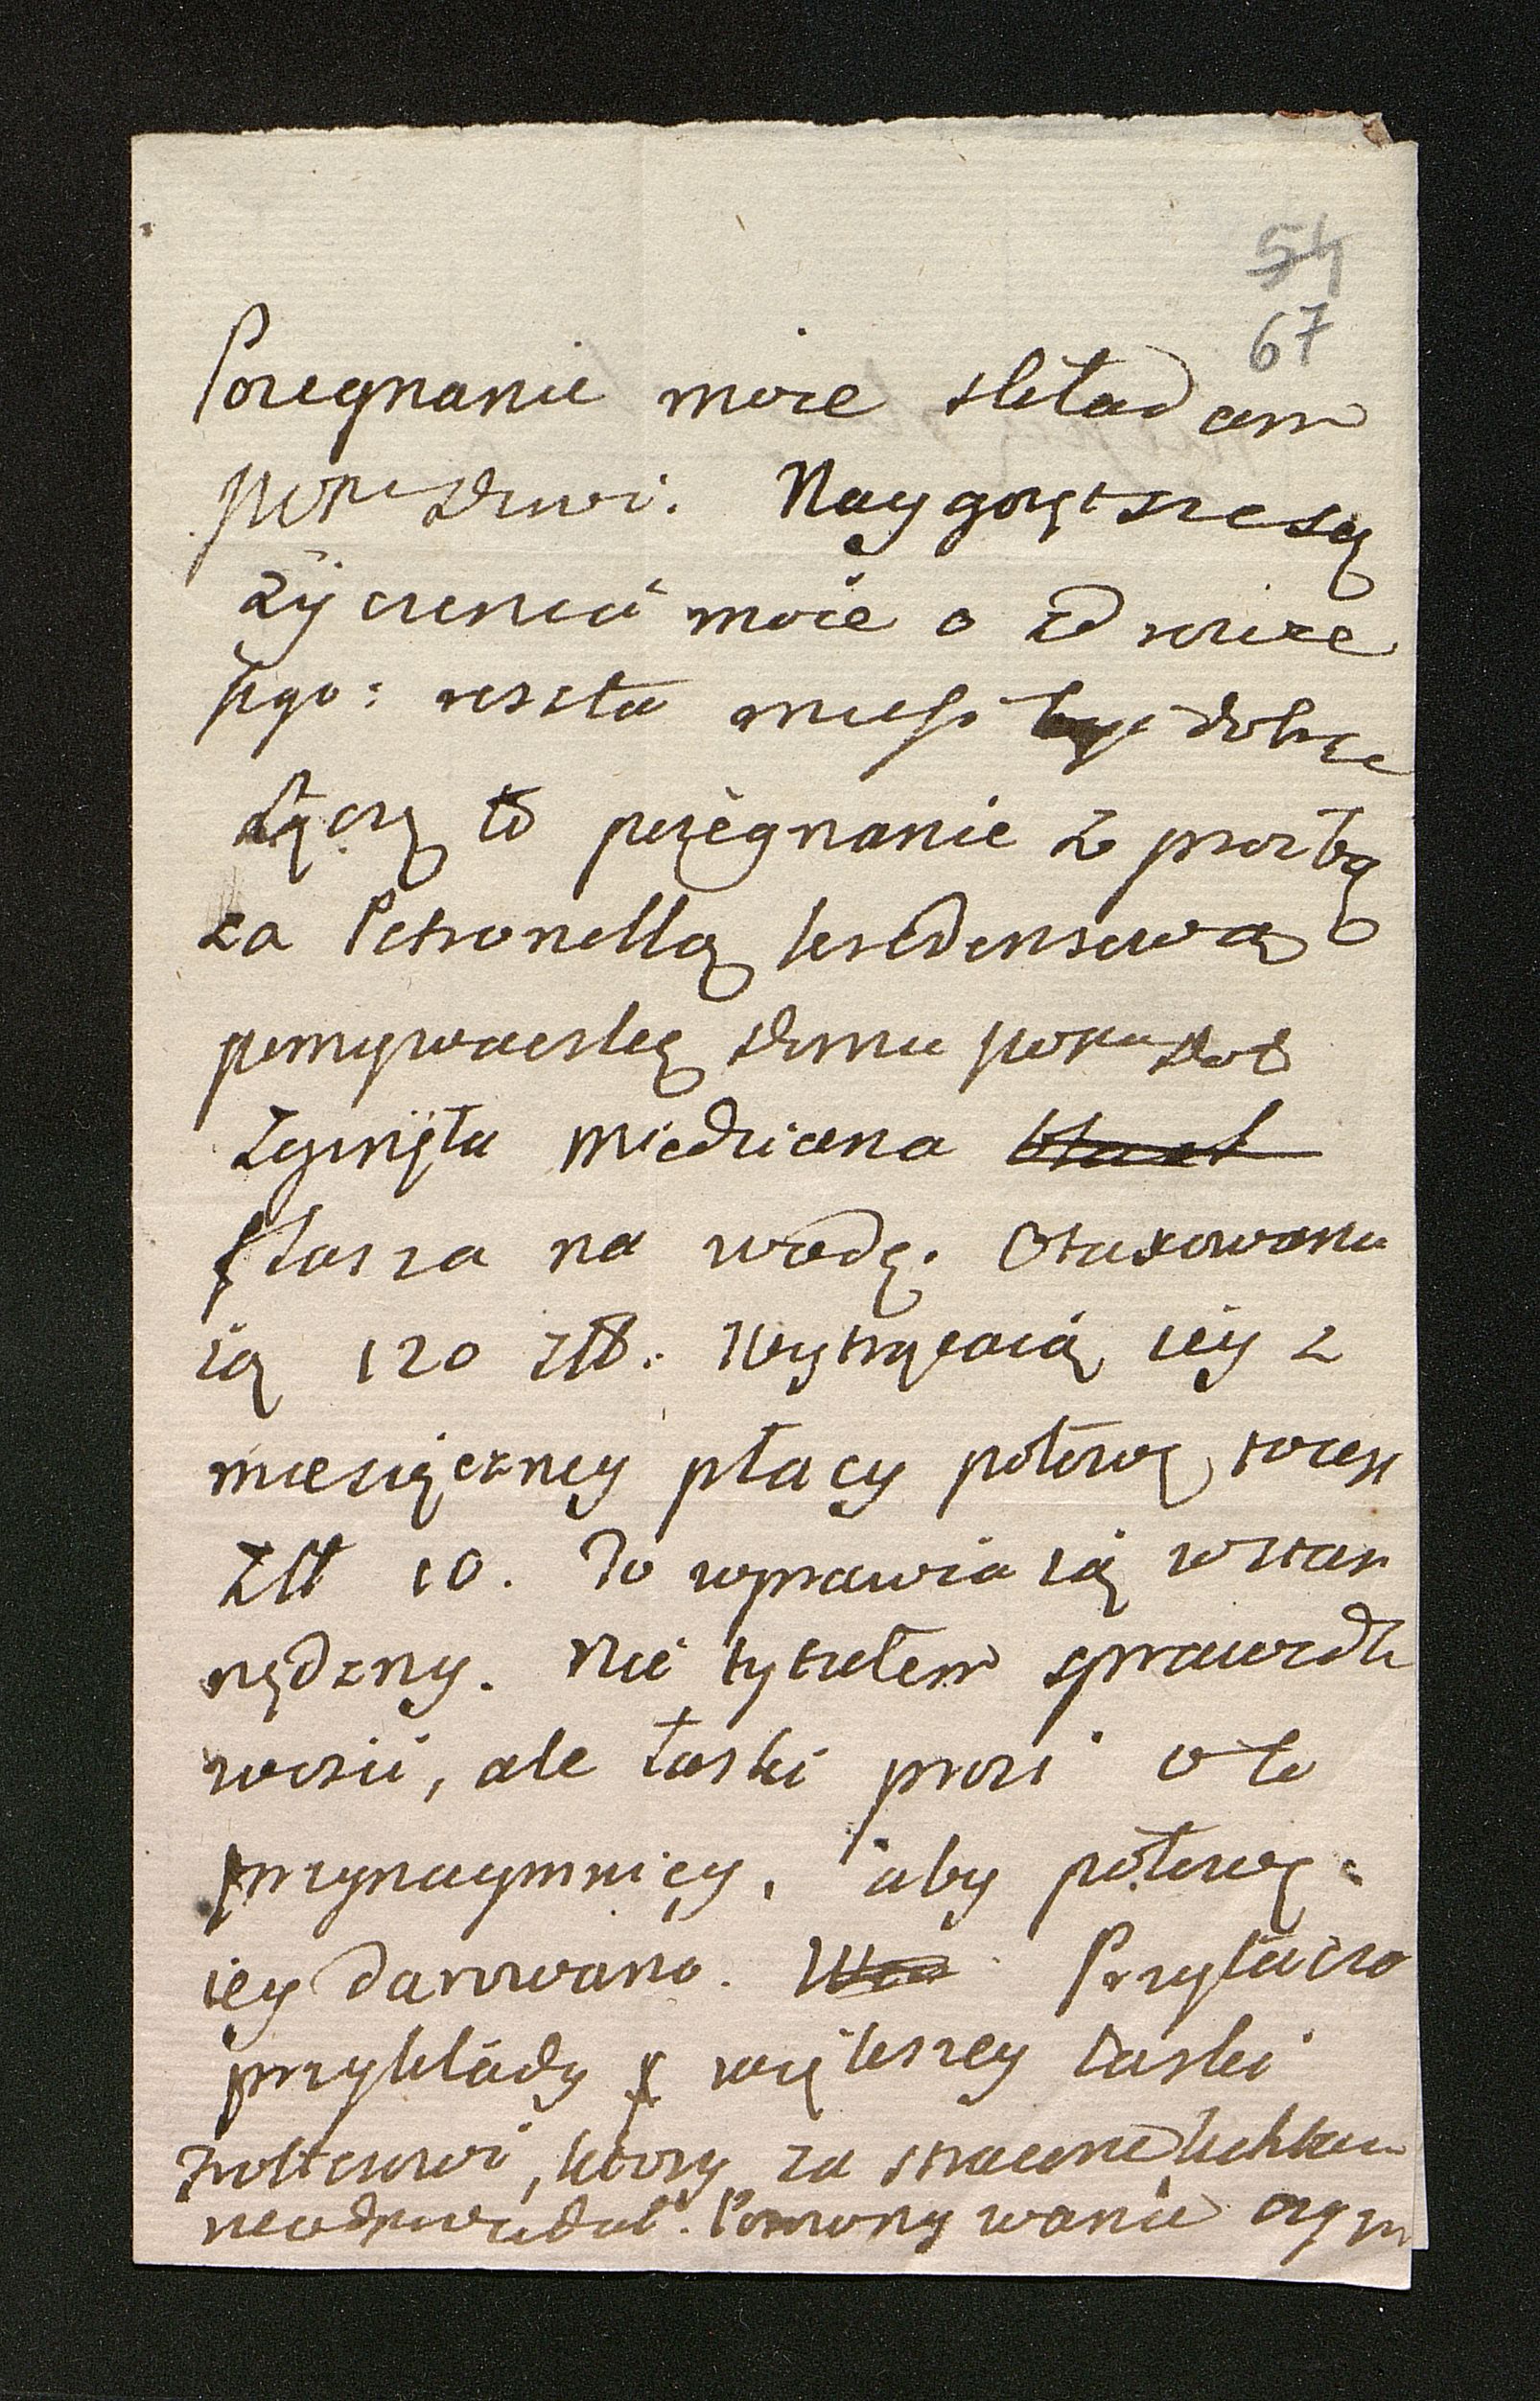 54
67
Pożegnanie moie składam
Naygorętsze są
życzenia moie o zdrowie
iego: reszta musi być dobrze
Łączę to pożegnanie z proźbą
za Petronellą kredensową
pomywaczkę domu
Zginęła miedziana
flasza na wodę. Otaxowano
ią 120 złt. Wytrącaią iey z
miesięczney płacy połowę to iest
złt 10. To wprawia ią w stan
nędzny. Nie tytułem sprawiedli
wości, ale łaski prosi o to
przynaymniey, aby połowę
iey darowano. Przytacza
przykłady większey łaski
który za stracone
nieodpowiadał. Porównywanie